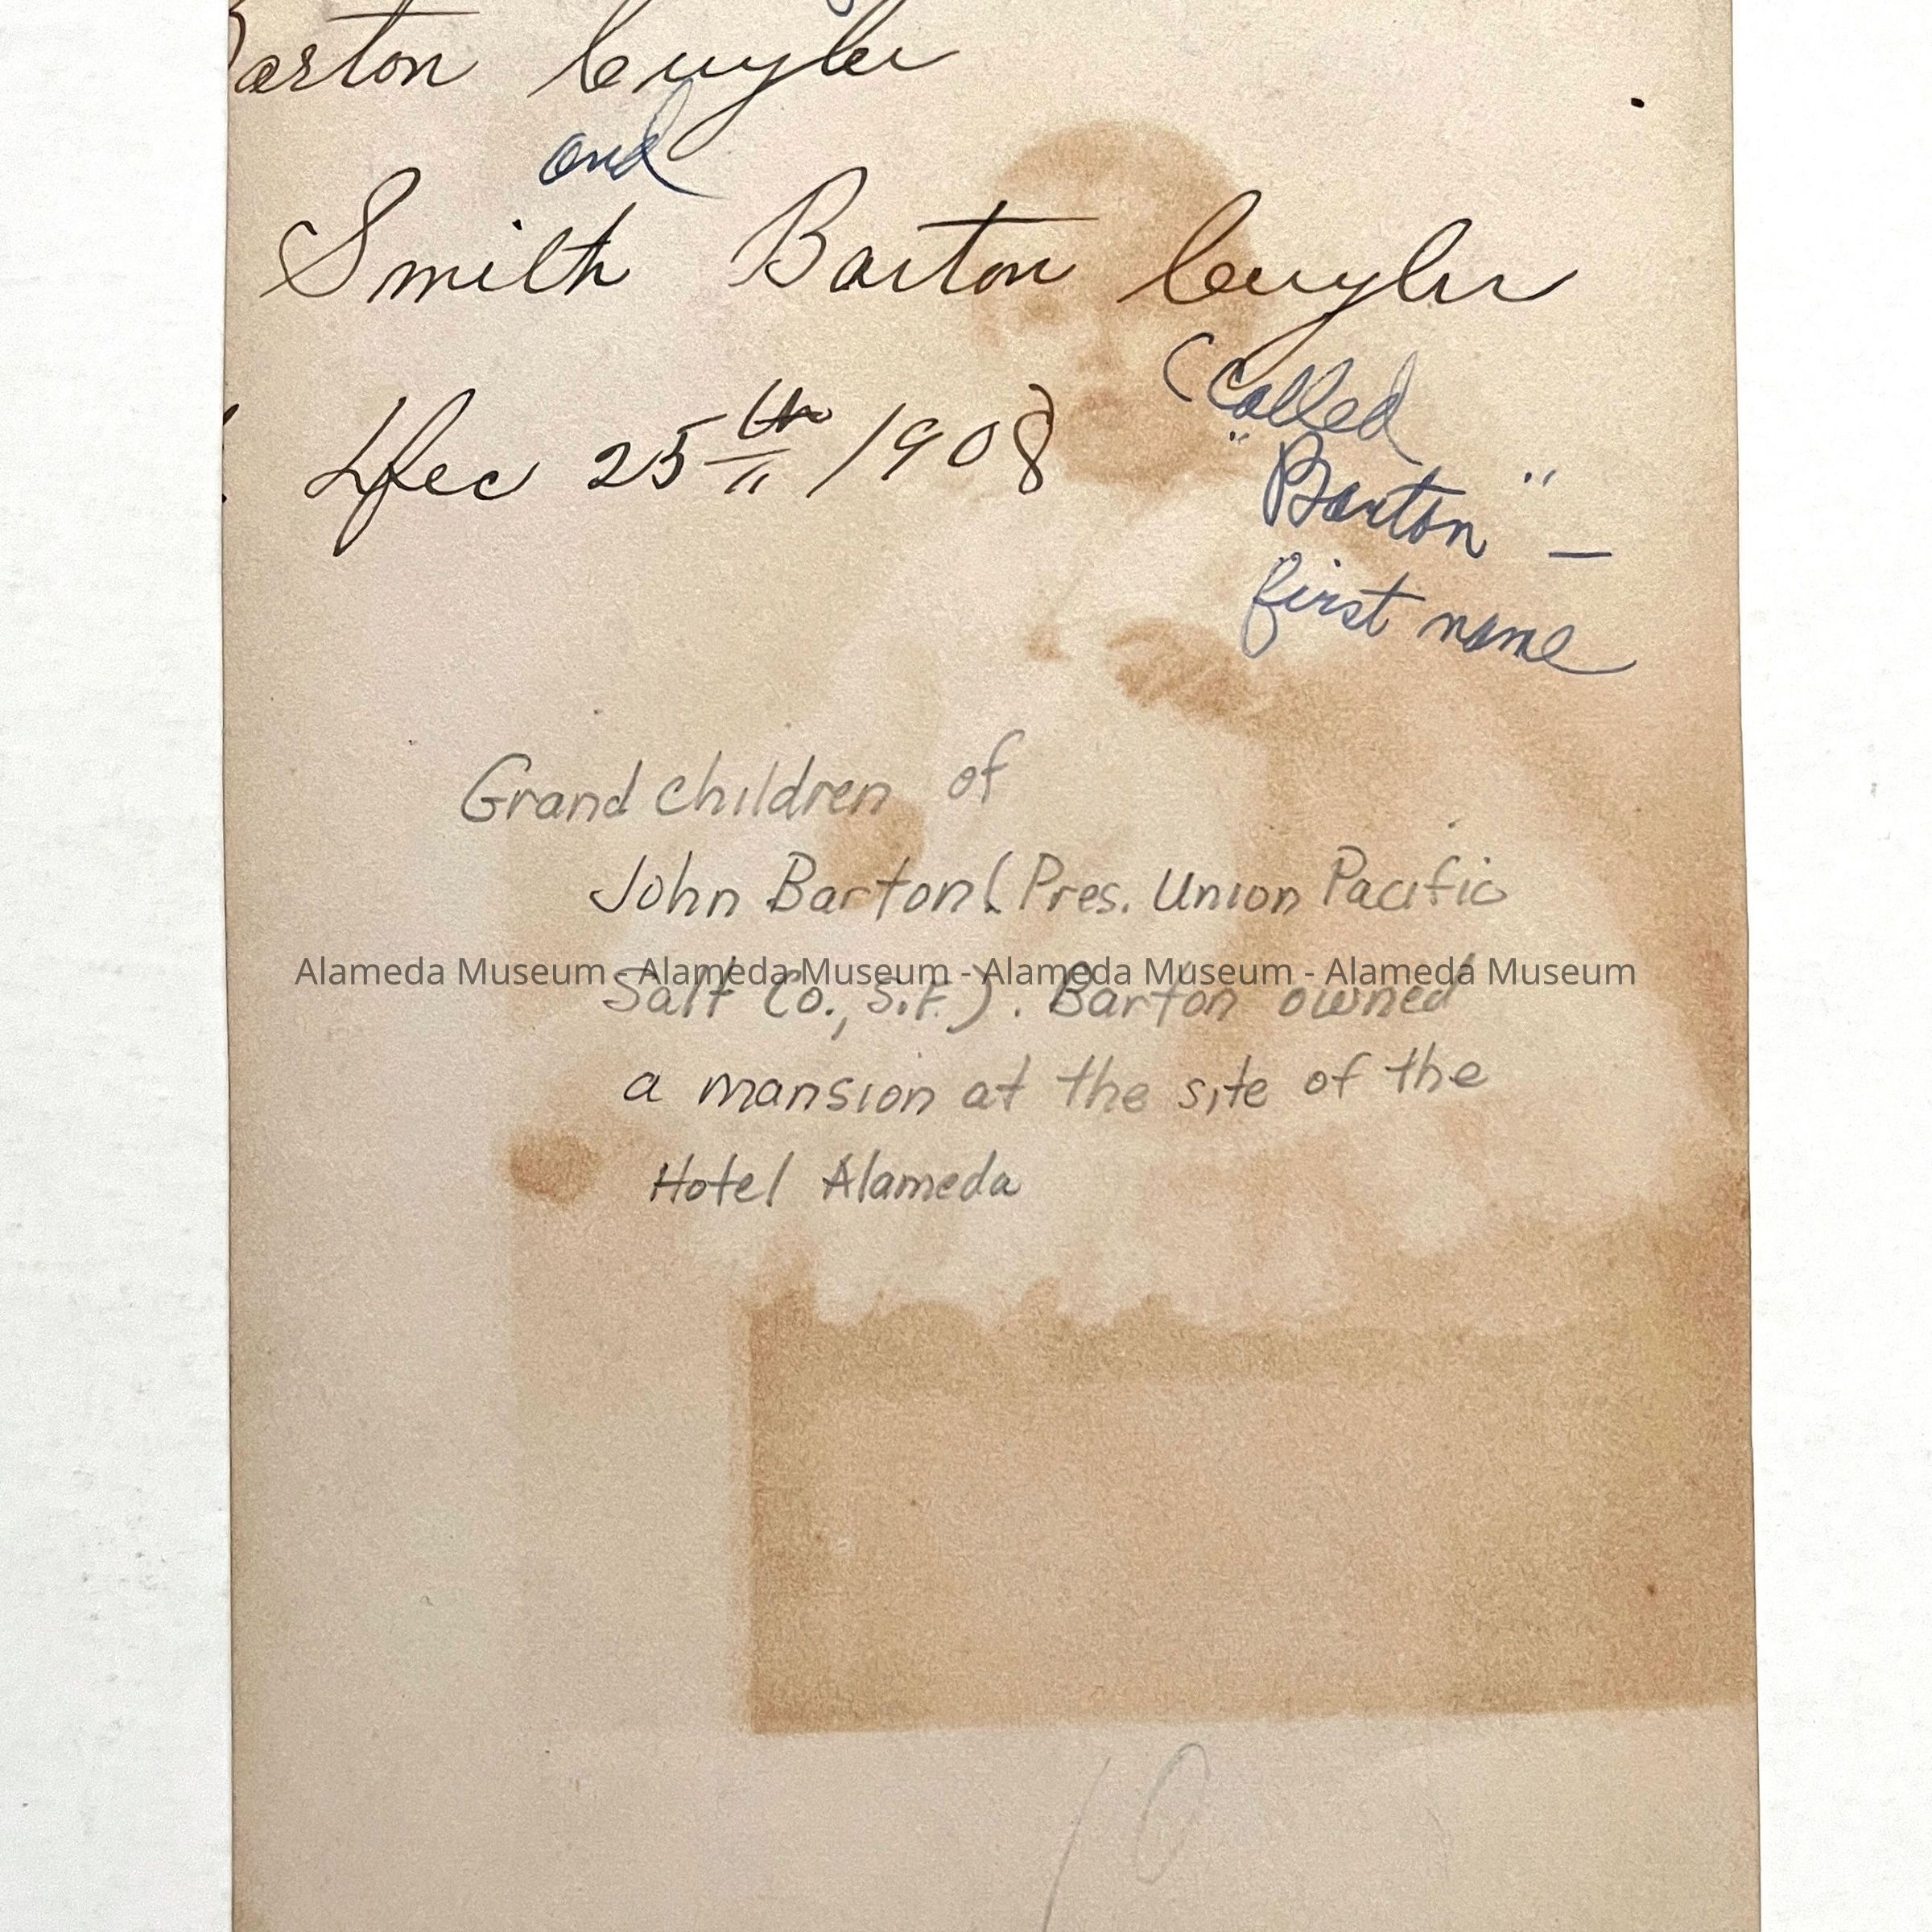 Barton Cuyler
and
Smith Barton Cuyler
Dec 25th 1908
(Called
"Barton" —
first name
Grand children of
John Barton (Pres. Union Pacific
Salt Co., S.F.). Barton owned
a mansion at the site of the
Hotel Alameda
Alameda Museum - Alameda Museum - Alameda Museum - Alameda Museum
10